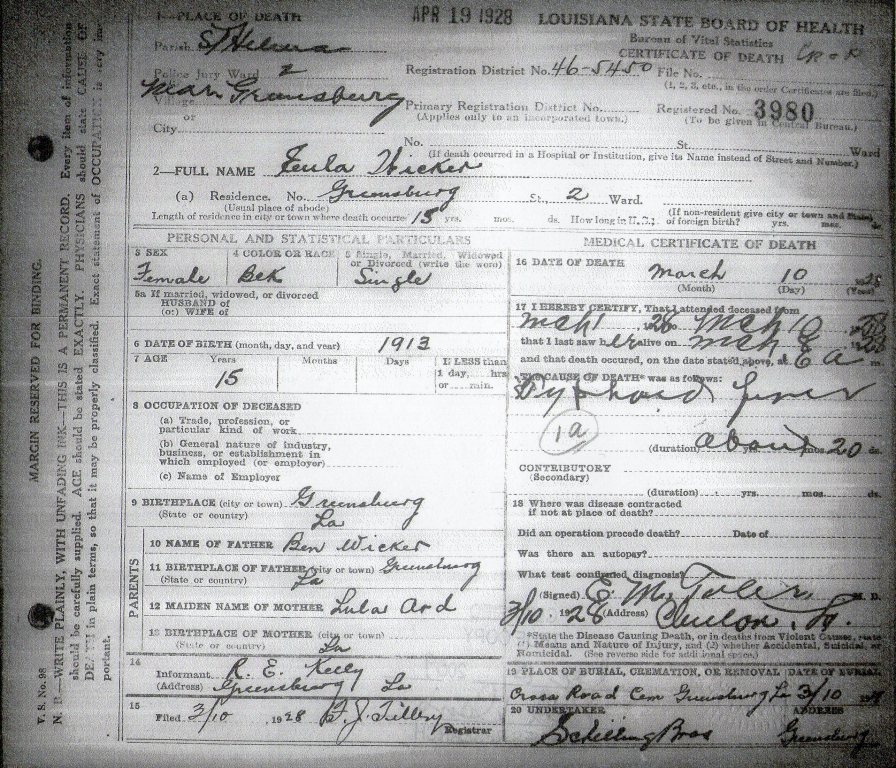 APR 19 1928 LOUISIANA STATE BOARD OF HEALTH
1—PLACE OF DEATH
Bureau of Vital Statistics
CERTIFICATE OF DEATH
Parish St Helena
Police Jury Ward 2
Registration District No. 46-5450 File No.
(1, 2, 3, etc., in the order Certificates are filed.)
Village near Greensburg
or
Primary Registration District No. Registered No. 3980
(Applies only to an incorporated town.) (To be given in Central Bureau.)
City
No. St. Ward
(If death occurred in a Hospital or Institution, give its Name instead of Street and Number.)
2—FULL NAME Wicker
(a) Residence. No. Greensburg St., 2 Ward.
(Usual place of abode) (If non-resident give city or town and State)
Length of residence in city or town where death occurred 15 yrs. mos. ds. How long in U.S., of foreign birth? yrs. mos. ds.
PERSONAL AND STATISTICAL PARTICULARS
3 SEX 4 COLOR OR RACE 5 Single, Married, Widowed
or Divorced (write the word)
Female Blk Single
5a If married, widowed, or divorced
HUSBAND of
(or) WIFE of
6 DATE OF BIRTH (month, day, and year) 1913
7 AGE Years Months Days If LESS than
1 day, hrs
or min.
15
8 OCCUPATION OF DECEASED
(a) Trade, profession, or
particular kind of work
(b) General nature of industry,
business, or establishment in
which employed (or employer)
(c) Name of Employer
9 BIRTHPLACE (city or town) Greensburg
(State or country) La
PARENTS
10 NAME OF FATHER Ben Wicker
11 BIRTHPLACE OF FATHER (city or town) Greensburg
(State or country) La
12 MAIDEN NAME OF MOTHER Lula Ard
13 BIRTHPLACE OF MOTHER (city or town)
(State or country) La
14
Informant R. E. Kelly
(Address) Greensburg La
15
Filed 3/10 1928 Tillery
Registrar
MEDICAL CERTIFICATE OF DEATH
16 DATE OF DEATH March 10
(Month) (Day) (Year)
17 I HEREBY CERTIFY, That I attended deceased from
mch 1 28 mch 10
that I last saw her alive on mch
and that death occured, on the date stated above, at a m.
THE CAUSE OF DEATH* was as follows:
Typhoid fever
1a
(duration) about yrs. mos. 20 ds.
CONTRIBUTORY
(Secondary)
(duration) yrs. mos. ds.
18 Where was disease contracted
if not at place of death?
Did an operation precede death? Date of
Was there an autopsy?
What test confirmed diagnosis?
(Signed) E. M. Toler M. D.
3/10 1928 (Address) Clinton, La.
*State the Disease Causing Death, or in deaths from Violent Causes, state
(1) Means and Nature of Injury, and (2) whether Accidental, Suicidal, or
Homicidal. (See reverse side for additional space.)
19 PLACE OF BURIAL, CREMATION, OR REMOVAL DATE OF BURIAL
Cross Road Cem Greensburg La 3/10
20 UNDERTAKER ADDRESS
Schilling Bros Greensburg
V. S. No. 98
MARGIN RESERVED FOR BINDING.
N. B.—WRITE PLAINLY, WITH UNFADING INK—THIS IS A PERMANENT RECORD. Every item of information
should be carefully supplied. AGE should be stated EXACTLY. PHYSICIANS should state CAUSE OF
DEATH in plain terms, so that it may be properly classified. Exact statement of OCCUPATION is very im-
portant.